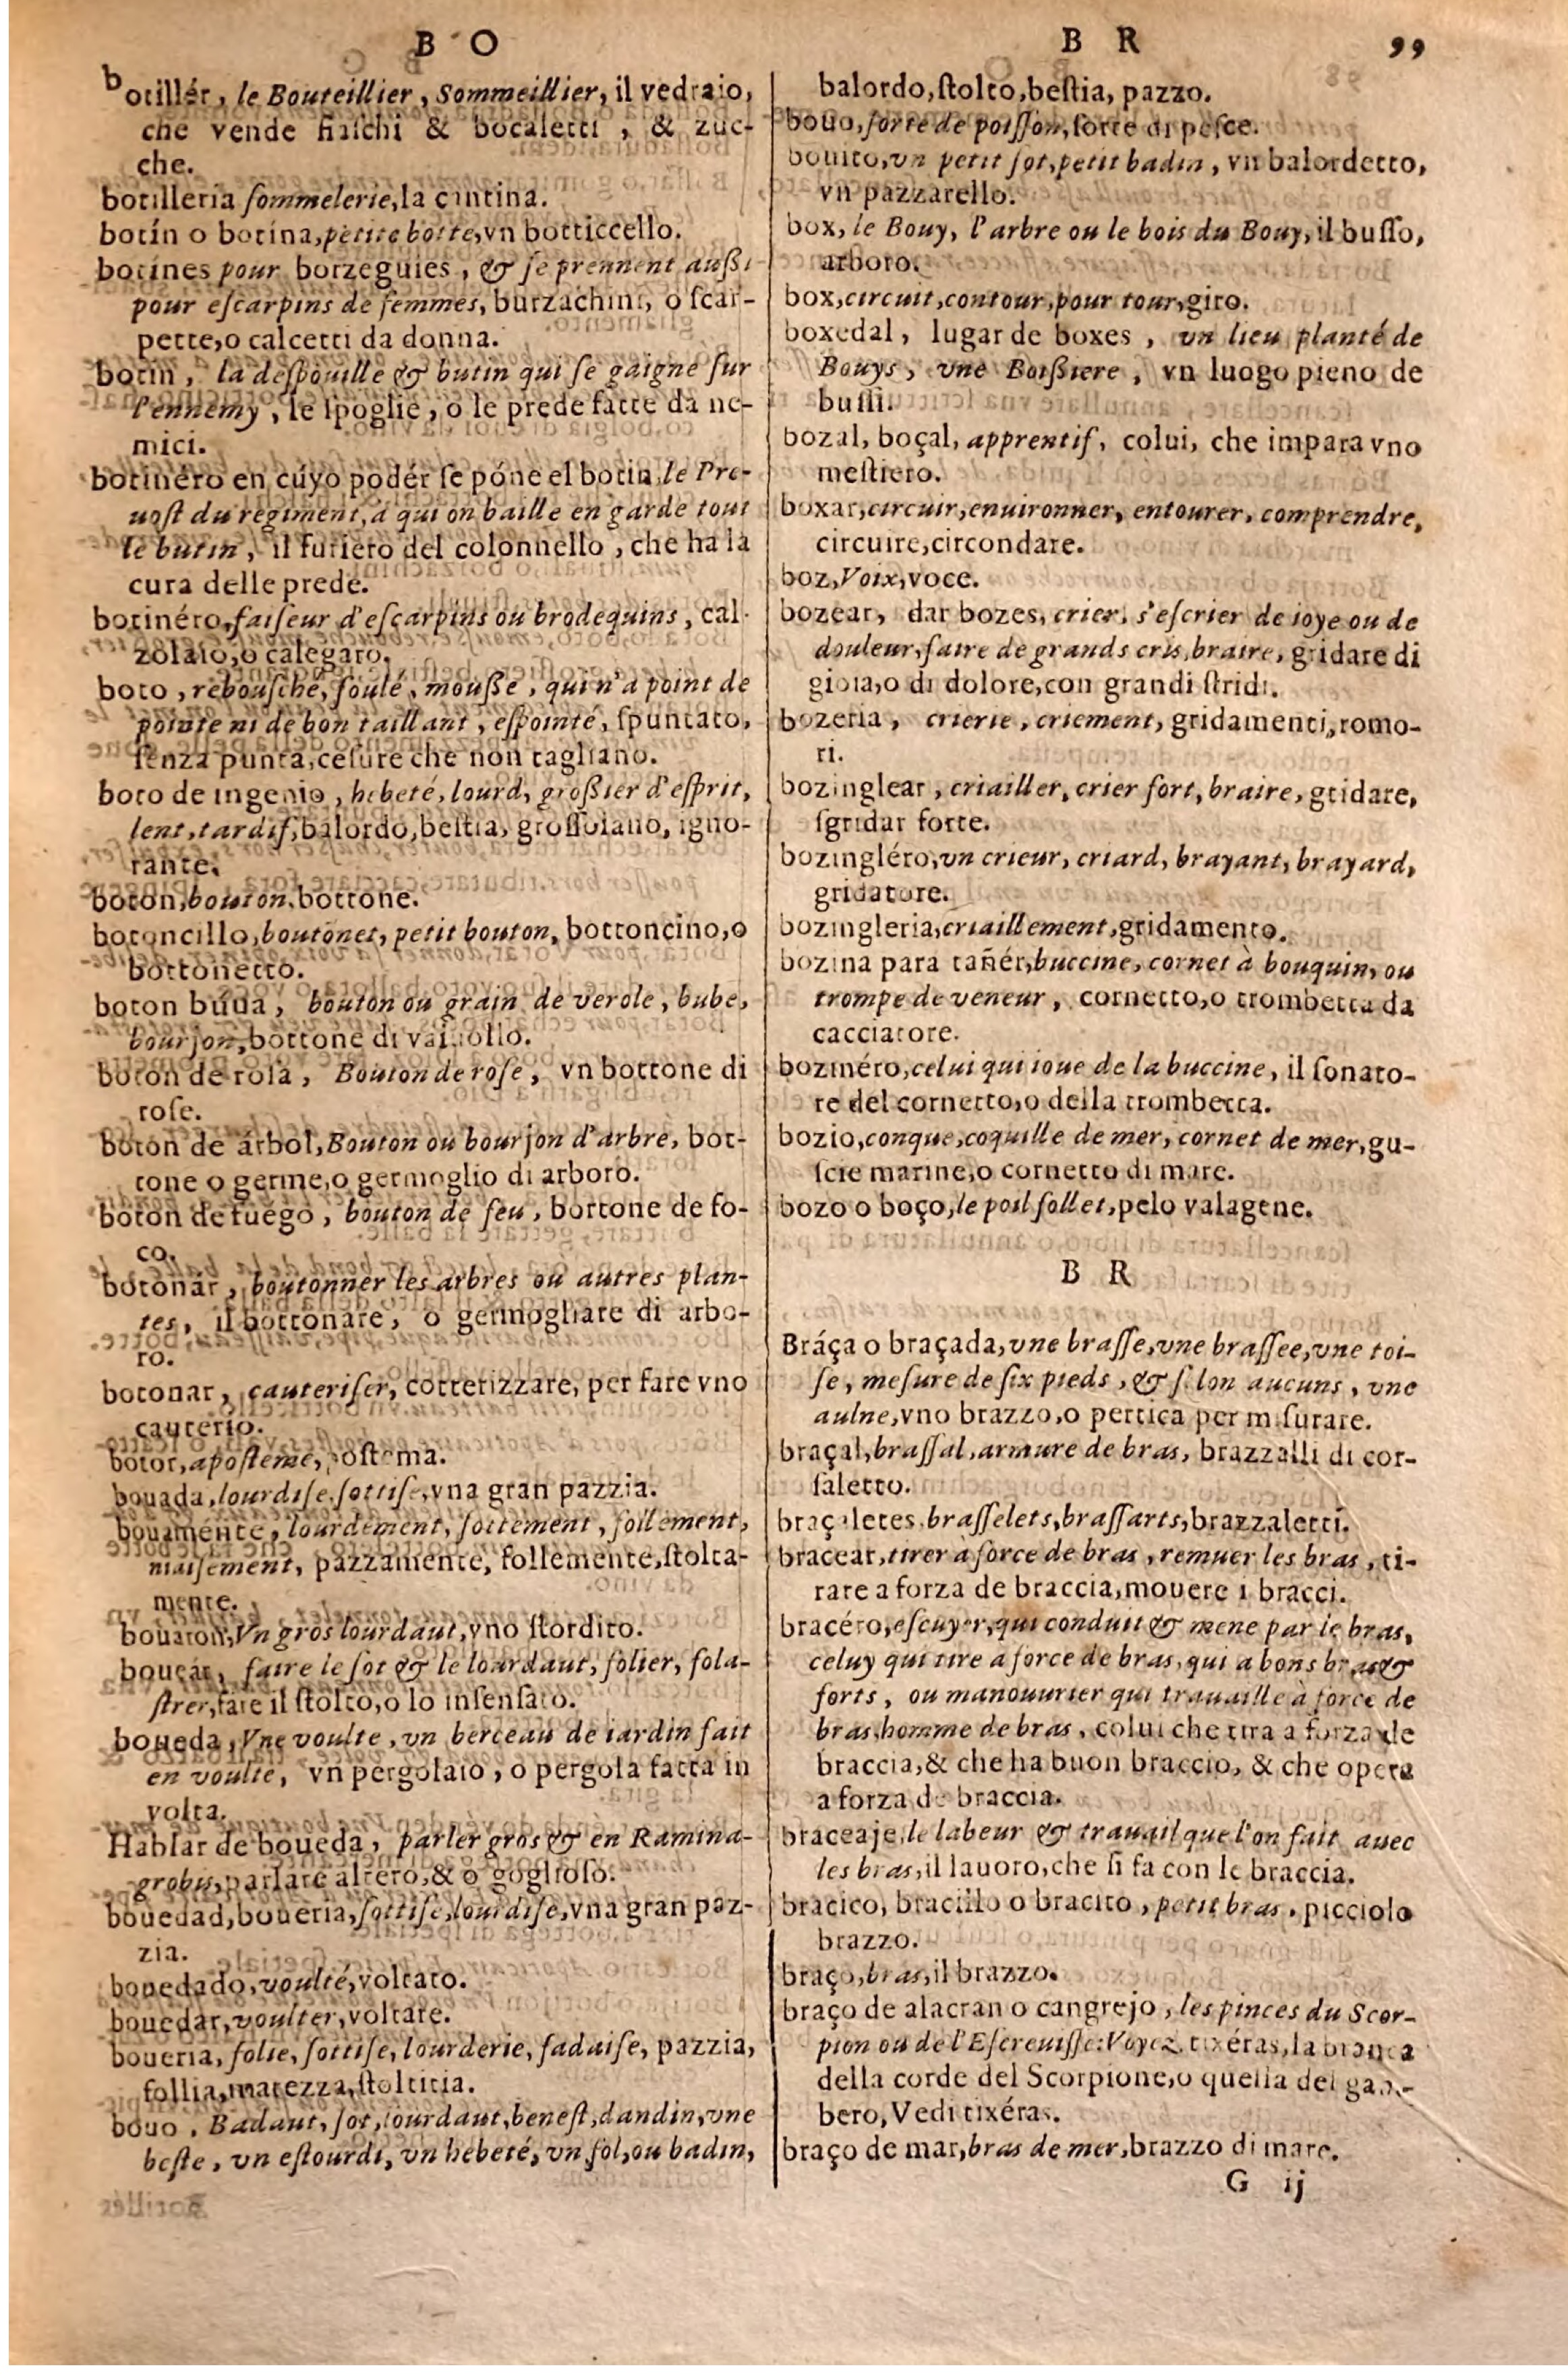 B O
botillér, le Bouteillier, Sommeillier, il vedraio,
che vende fiaſchi & bocaletti, & zuc-
che.
botilleria ſommelerie, la cantina.
botín o botina, petite botte, vn botticcello.
botines pour borzeguies, & ſe prennent außi
pour eſcarpins de femmes, burzachini, o ſcar-
pette, o calcetti da donna.
botin, la deſpouille & butin qui ſe gaigne ſur
l'ennemy, le ſpoglie, o le prede fatte da ne-
mici.
botinéro en cúyo podér ſe póne el botin, le Pre-
uoſt du regiment, à qui on baille en garde tout
le butin, il furiero del colonnello, che ha la
cura delle prede.
botinéro, faiſeur d'eſcarpins ou brodequins, cal-
zolaio, o calegaro.
boto, rebouſche, foulé, mouße, qui n'a point de
pointe ni de bon taillant, eſpointé, ſpuntato,
ſenza punta, ceſure che non tagliano.
boto de ingenio, hebeté, lourd, großier d'eſprit,
lent, tardif, balordo, beſtia, groſſolano, igno-
rante.
boton, bouton, bottone.
botoncillo, boutonet, petit bouton, bottoncino, o
bottonetto.
boton búua, bouton ou grain de verole, bube,
bourjon, bottone di vaiuollo.
boton de roſa, Bouton de roſe, vn bottone di
roſe.
boton de árbol, Bouton ou bourjon d'arbre, bot-
tone o germe, o germoglio di arboro.
boton de fuégo, bouton de feu, bottone de fo-
co.
botonár, boutonner les arbres ou autres plan-
tes, il bottonare, o germogliare di arbo-
ro.
botonar, cauteriſer, cotterizzare, per fare vno
cauterio.
botor, apoſteme, poſtema.
bouada, lourdiſe, ſottiſe, vna gran pazzia.
bouaménte, lourdement, ſottement, follement,
niaiſement, pazzamente, follemente, ſtolta-
mente.
bouaron, Vn gros lourdaut, vno ſtordito.
bouear, faire le ſot & le lourdaut, folier, fola-
ſtrer, fare il ſtolto, o lo inſenſato.
boueda, Vne voulte, vn berceau de iardin fait
en voulte, vn pergolato, o pergola fatta in
volta.
Hablar de boueda, parler gros & en Ramina-
grobis, parlare altero, & o goglioſo.
bouedad, boueria, ſottiſe, lourdiſe, vna gran paz-
zia.
bouedado, voulté, voltato.
bouedar, voulter, voltare.
boueria, folie, ſottiſe, lourderie, fadaiſe, pazzia,
follia, matezza, ſtoltitia.
bouo, Badaut, ſot, lourdaut, beneſt, dandin, vne
beſte, vn eſtourdi, vn hebeté, vn fol, ou badin,
B R
99
balordo, ſtolto, beſtia, pazzo.
bouo, ſorte de poiſſon, ſorte di peſce.
bouito, vn petit ſot, petit badin, vn balordetto,
vn pazzarello.
box, le Bouy, l'arbre ou le bois du Bouy, il buſſo,
arboro.
box, circuit, contour, pour tour, giro.
boxedal, lugar de boxes, vn lieu planté de
Bouys, vne Boißiere, vn luogo pieno de
buſſi.
bozal, boçal, apprentif, colui, che impara vno
meſtiero.
boxar, circuir, enuironner, entourer, comprendre,
circuire, circondare.
boz, Voix, voce.
bozear, dar bozes, crier, s'eſcrier de ioye ou de
douleur, faire de grands cris, braire, gridare di
gioia, o di dolore, con grandi ſtridi.
bozeria, crierie, criement, gridamenti, romo-
ri.
bozinglear, criailler, crier fort, braire, gridare,
ſgridar forte.
bozingléro, vn crieur, criard, brayant, brayard,
gridatore.
bozingleria, criaillement, gridamento.
bozina para tañér, buccine, cornet à bouquin, ou
trompe de veneur, cornetto, o trombetta da
cacciatore.
bozinéro, celui qui ioue de la buccine, il ſonato-
re del cornetto, o della trombetta.
bozio, conque, coquille de mer, cornet de mer, gu-
ſcie marine, o cornetto di mare.
bozo o boço, le poil follet, pelo valagene.
B R
Bráça o braçada, vne braſſe, vne braſſee, vne toi-
ſe, meſure de ſix pieds, & ſelon aucuns, vne
aulne, vno brazzo, o pertica per miſurare.
braçal, braſſal, armure de bras, brazzalli di cor-
ſaletto.
braçaletes, braſſelets, braſſarts, brazzaletti.
bracear, tirer à force de bras, remuer les bras, ti-
rare a forza de braccia, mouere i bracci.
bracéro, eſcuyer, qui conduit & mene par le bras,
celuy qui tire a force de bras, qui a bons bras &
forts, ou manouurier qui trauaille à force de
bras, homme de bras, colui che tira a forza de
braccia, & che ha buon braccio, & che opera
a forza de braccia.
braceaje, le labeur & trauail que l'on fait auec
les bras, il lauoro, che ſi fa con le braccia.
bracico, bracillo o bracito, petit bras, picciolo
brazzo.
braço, bras, il brazzo.
braço de alacran o cangrejo, les pinces du Scor-
pion ou de l'Eſcreuiſſe: Voyez tixéras, la branca
della corde del Scorpione, o quella del gam-
bero, Vedi tixéras.
braço de mar, bras de mer, brazzo di mare.
G ij